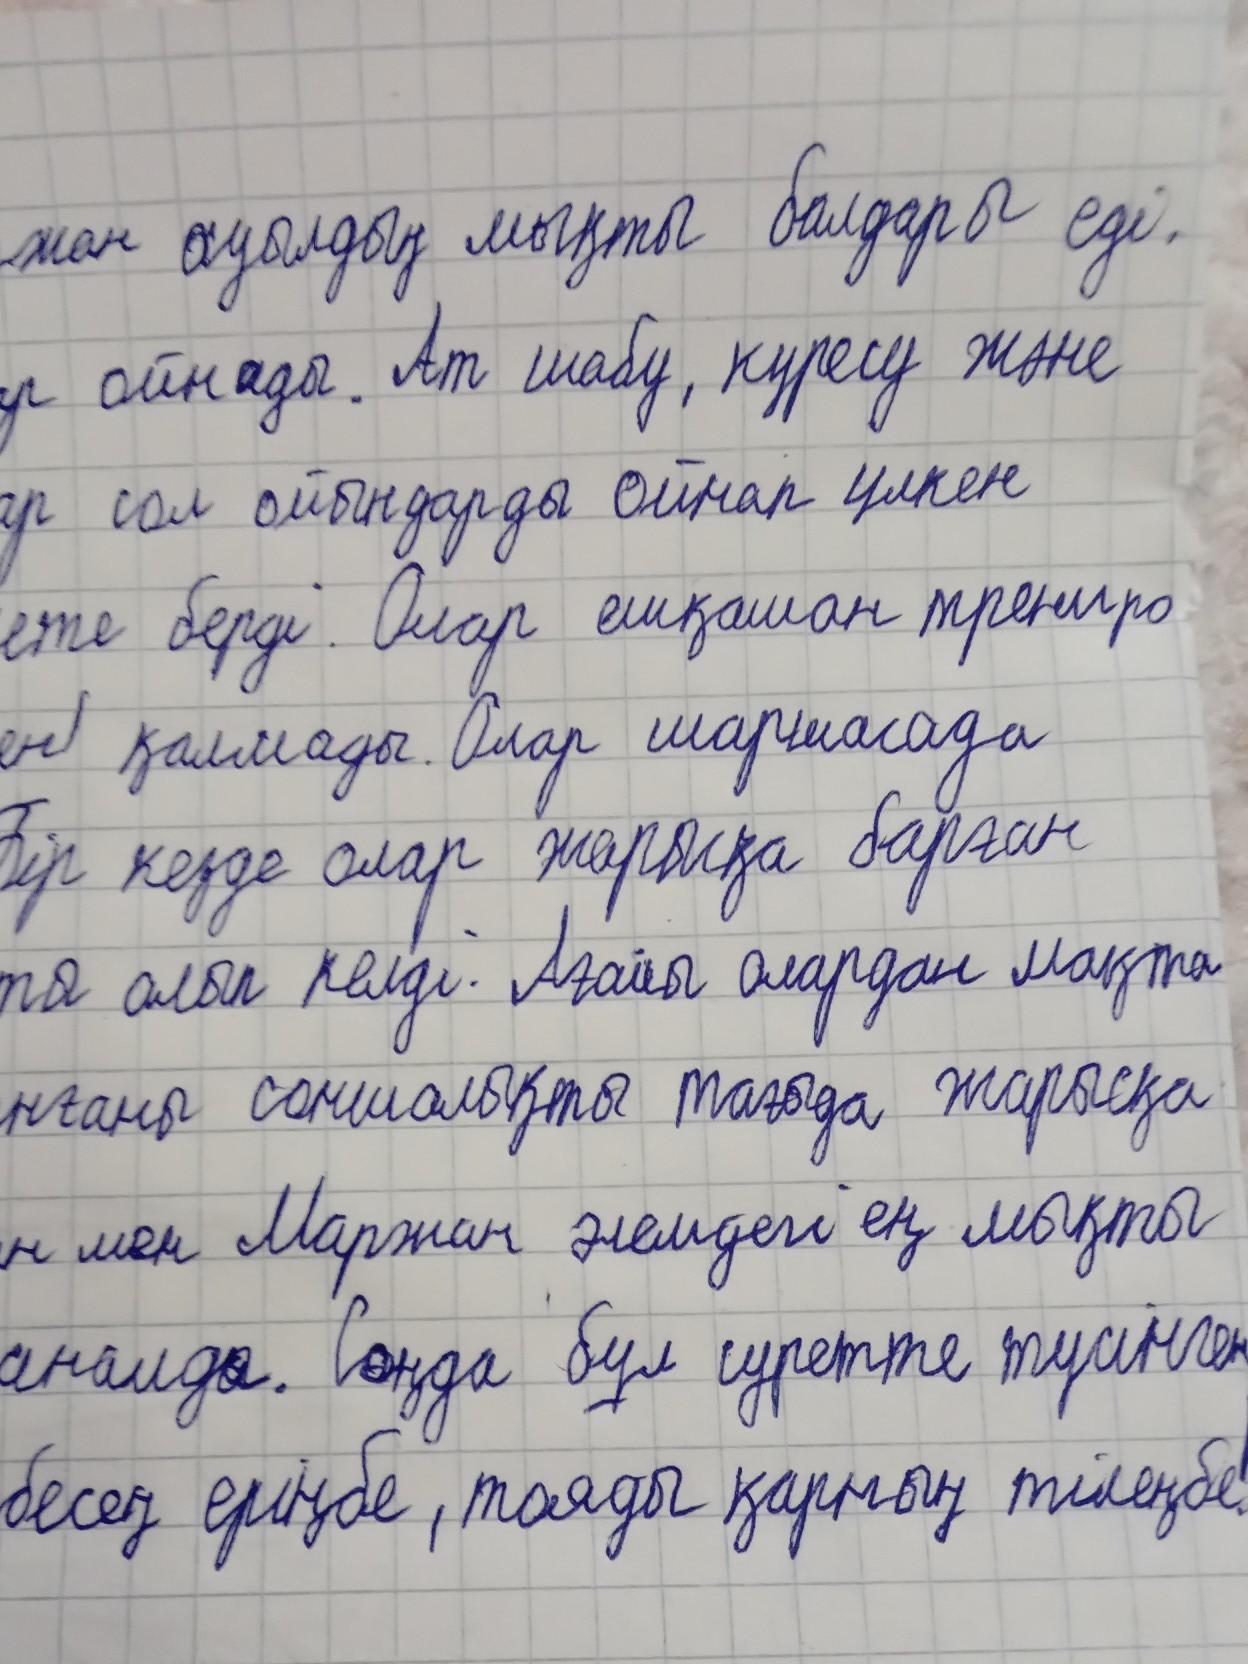 жан ауылдың мықты балдары еді.
ойнады. Ат шабу, күресу және
ар сол ойындарды ойнап үлкен
ете берді. Олар ешқашан трениро
ен қалмады. Олар шаршасада
Бір кезде олар жарысқа барған
ты алып келді. Ағайы олардан мақта
нғаны соншалықты тағыда жарысқа
н мен Маржан әлемдегі ең мықты
аналды. Соңда бұл суретте түсінген
бесең еріңбе, тояды қарның тілеңбе!